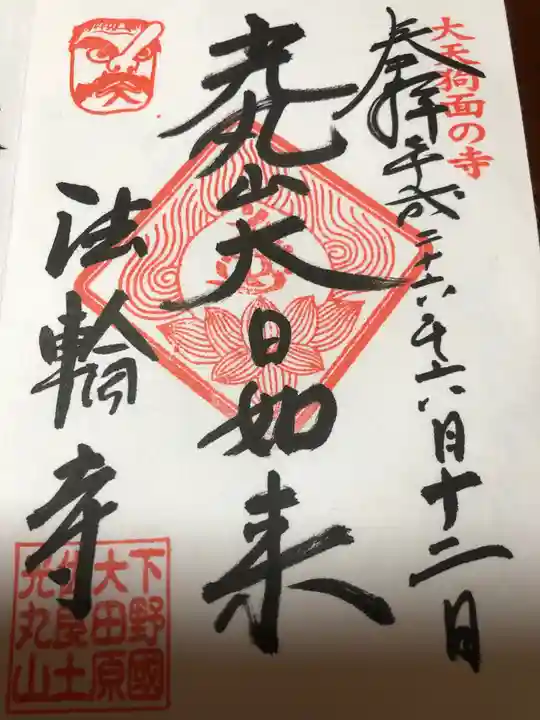 大天狗面の寺
奉拝
平成二十六年六月十二日
光丸山大日如来
法輪寺
下野國
大田原
佐良土
光丸山